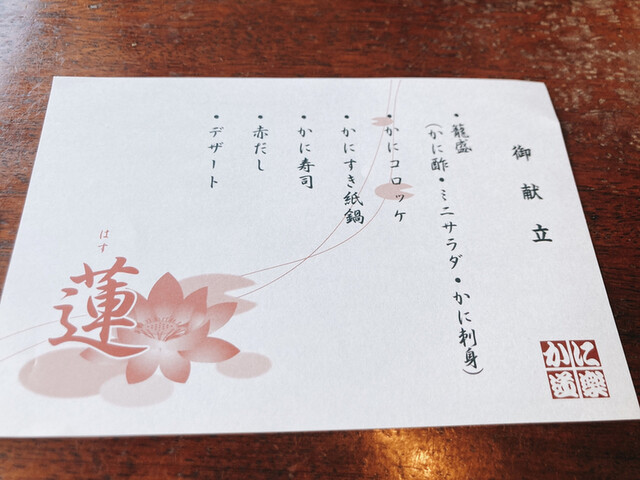 御献立
・籠盛
(かに酢・ミニサラダ・かに刺身)
・かにコロッケ
・かにすき紙鍋
・かに寿司
・赤だし
・デザート
はす
蓮
かに
道楽